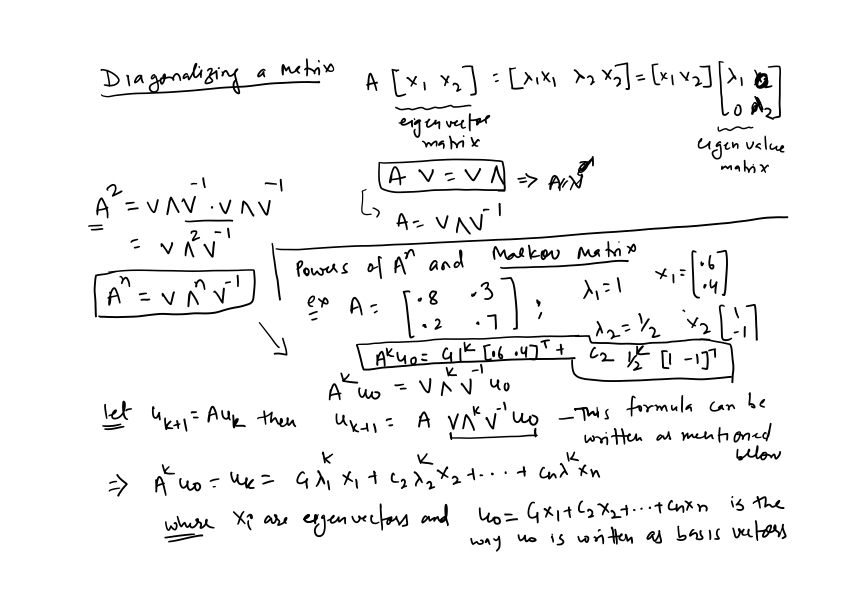 Diagonalizing a matrix
A [x₁ x₂] = [λ₁x₁ λ₂x₂] = [x₁ x₂] [λ₁ 0
0 λ₂]
eigenvector matrix
eigen value matrix
A V = V Λ ⇒
↳ A = V Λ V⁻¹
A² = V Λ V⁻¹ · V Λ V⁻¹
= V Λ² V⁻¹
Aⁿ = V Λⁿ V⁻¹
Powers of Aⁿ and Markov Matrix
ex A = [.8 .3
.2 .7] ; λ₁ = 1 x₁ = [.6
.4]
λ₂ = 1/2 x₂ [1
-1]
Aᵏu₀ = C₁ 1ᵏ [.6 .4]ᵀ + C₂ 1/2ᵏ [1 -1]ᵀ
Aᵏ u₀ = V Λᵏ V⁻¹ u₀
let uₖ₊₁ = Auₖ then uₖ₊₁ = A VΛᵏV⁻¹u₀ – This formula can be
written as mentioned
below
⇒ Aᵏ u₀ = uₖ = C₁ λ₁ᵏ x₁ + C₂ λ₂ᵏ x₂ + ... + Cₙλᵏxₙ
where xᵢ are eigenvectors and u₀ = C₁x₁ + C₂x₂ + ... + Cₙxₙ is the
way u₀ is written as basis vectors